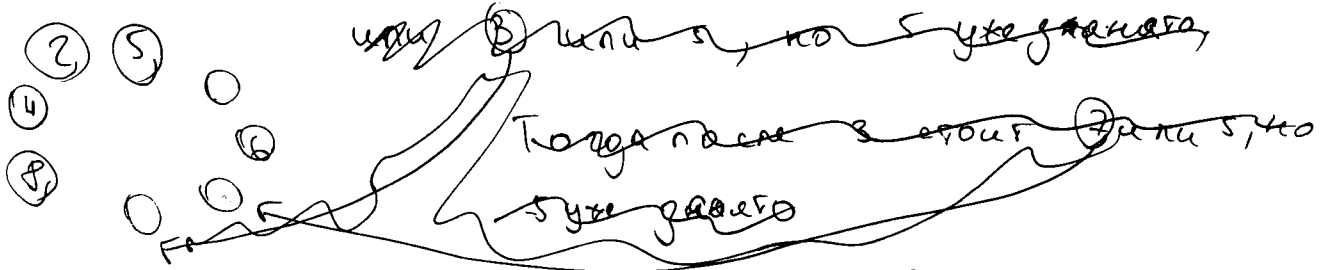 или 3 или 5, но 5 уже занято,
2, 5,
4
6
Тогда после 3 стоит 7 или 5, но
8,
5 уже занято